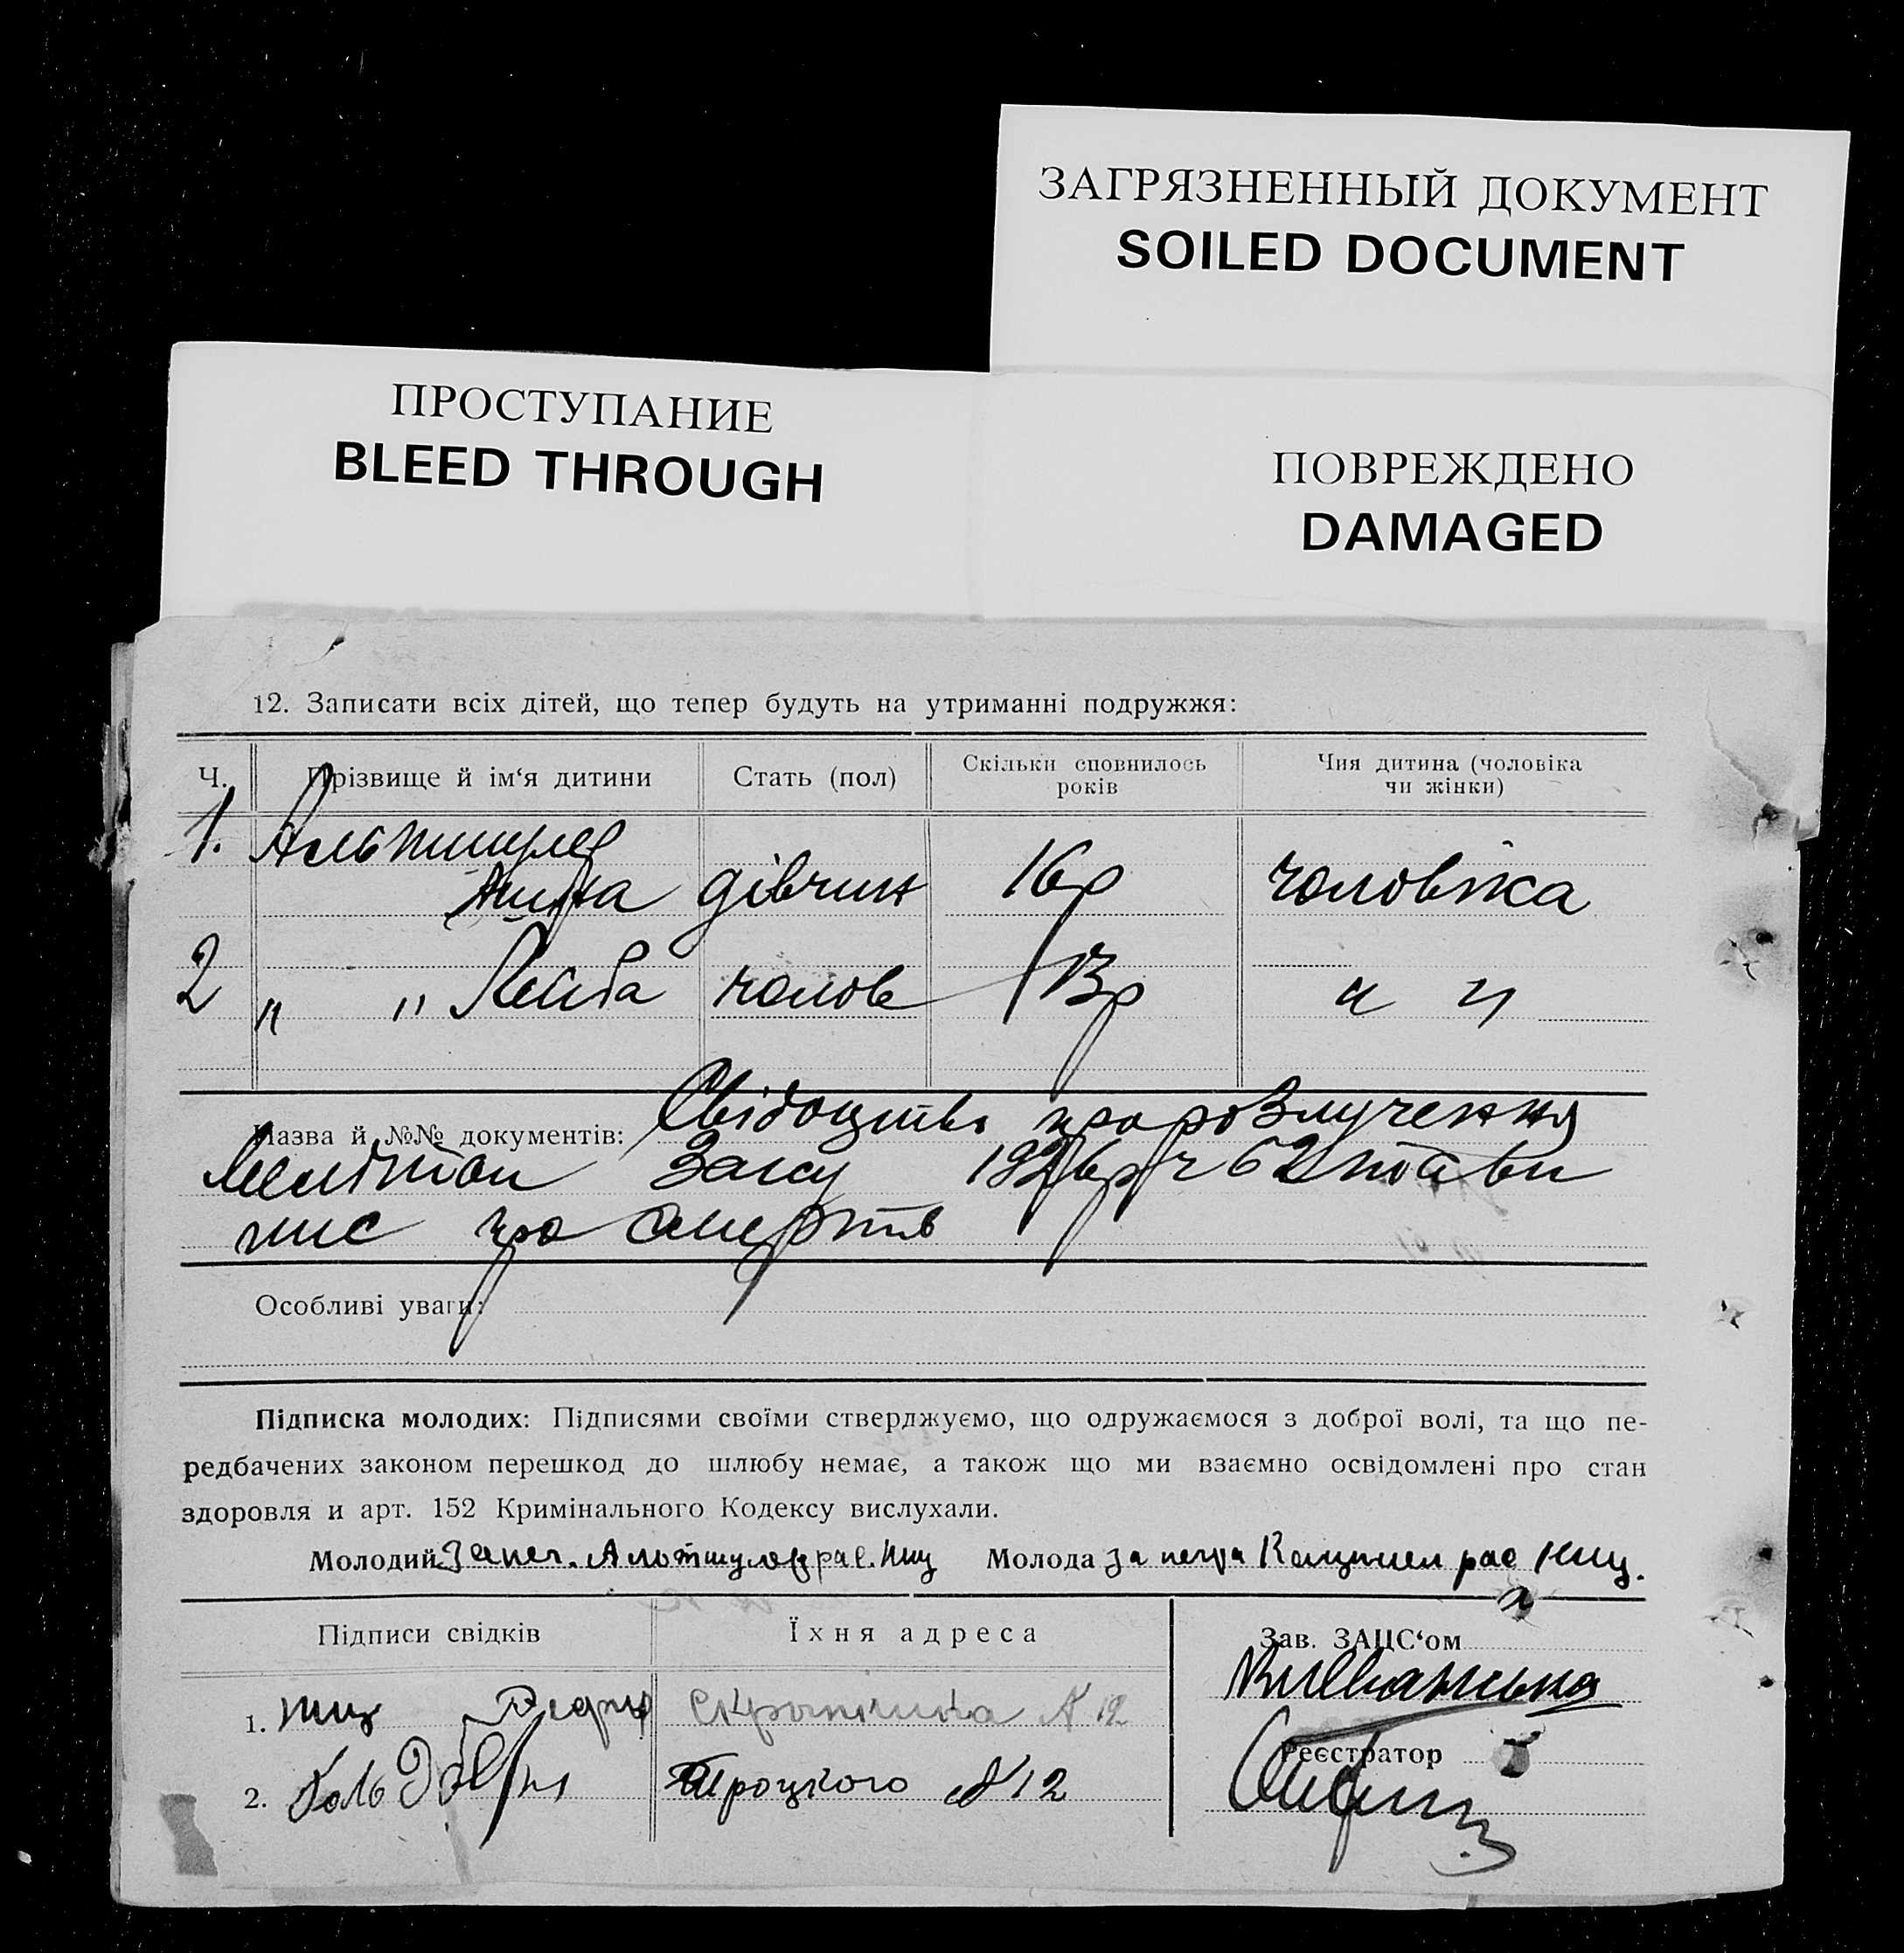 ЗАГРЯЗНЕННЫЙ ДОКУМЕНТ
SOILED DOCUMENT
ПРОСТУПАНИЕ
BLEED THROUGH
ПОВРЕЖДЕНО
DAMAGED
12. Записати всіх дітей, що тепер будуть на утриманні подружжя:
Ч. Прізвище й ім‘я дитини Стать (пол) Скільки сповнилось років Чия дитина (чоловіка чи жінки)
1. Альтшулер
дівчин 16р чоловіка
2 " " Лейба чолов 13р " "
Назва й №№ документів: Свідоцтво про розлучення
Загсу 1926р ч 62 та ви
пис про смерть
Особливі уваги:
Підписка молодих: Підписями своїми стверджуємо, що одружаємося з доброї волі, та що пе-
редбачених законом перешкод до шлюбу немає, а також що ми взаємно освідомлені про стан
здоровля и арт. 152 Кримінального Кодексу вислухали.
Молодий Альтшулер рас. Молода рас
Підписи свідків Їхня адреса Зав. ЗАЦС‘ом
1. N 12
Реєстратор
2. Троцкого N 12